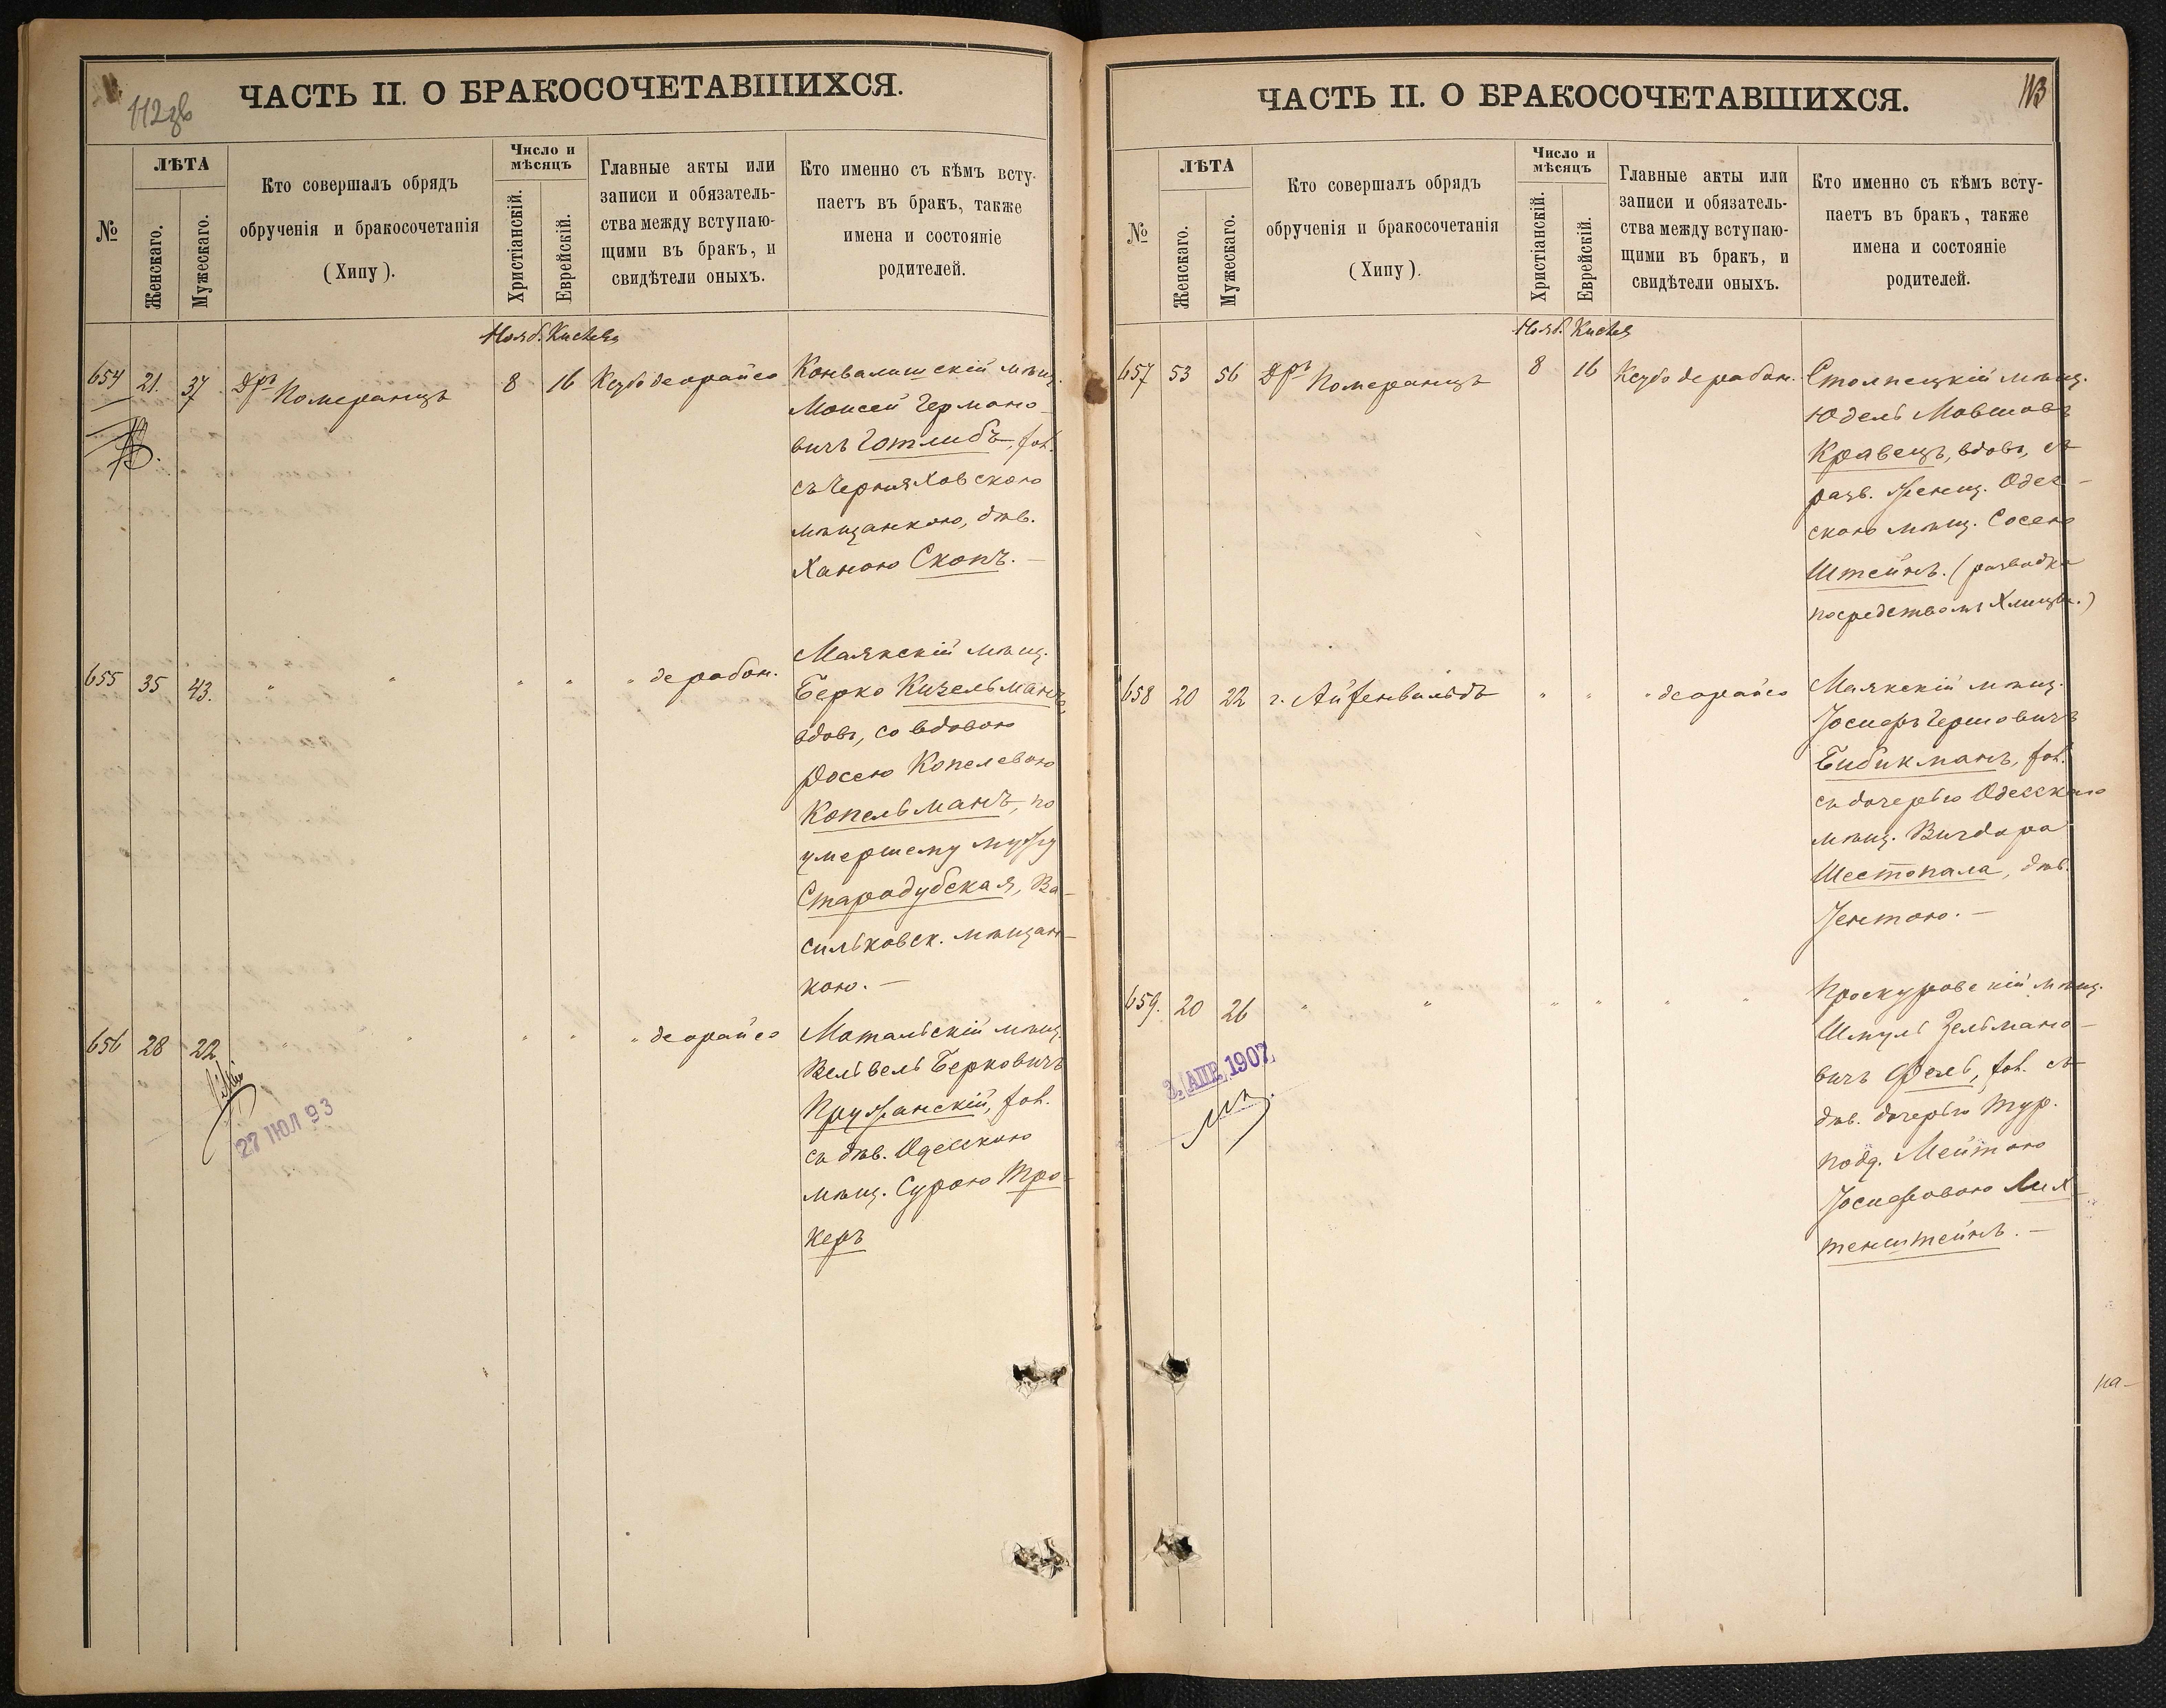 112 зв
ЧАСТЬ II. О БРАКОСОЧЕТАВШИХСЯ.
№
ЛѢТА
Женскаго.
Мужескаго.
Кто совершалъ обрядъ
обрученія и бракосочетанія
(Хипу).
Число и
мѣсяцъ
Христіанскій.
Еврейскій.
Главные акты или
записи и обязатель-
ства между вступаю-
щими въ бракъ, и
свидѣтели оныхъ.
Кто именно съ кѣмъ всту-
паетъ въ бракъ, также
имена и состояніе
родителей.
Нояб. Кислев
654 21. 37 Дръ Померанцъ 8 16 Ксубо деорайсо
Конвалишскій мѣщ.
Моисей Германо-
вичъ Готлибъ, хол.
съ Черняховскою
мѣщанкою, дѣв.
Ханою Скопъ. —
655 35 43. " " " " " де рабон.
Маякскій мѣщ.
Берко Кизельманъ,
вдов., со вдовою
Росею Копелевою
Копельманъ, по
умершему мужу
Стародубская, Ва-
сильковск. мѣщан-
кою. —
656 28 22 " " " " " деорайсо
Мотальскій мѣщ.
Вельвель Берковичъ
Пружанскій, хол.
съ дѣв. Одесскою
мѣщ. Сурою Тро-
керъ
27 ІЮЛ 93
113
ЧАСТЬ II. О БРАКОСОЧЕТАВШИХСЯ.
№
ЛѢТА
Женскаго.
Мужескаго.
Кто совершалъ обрядъ
обрученія и бракосочетанія
(Хипу).
Число и
мѣсяцъ
Христіанскій.
Еврейскій.
Главные акты или
записи и обязатель-
ства между вступаю-
щими въ бракъ, и
свидѣтели оныхъ.
Кто именно съ кѣмъ всту-
паетъ въ бракъ, также
имена и состояніе
родителей.
Нояб. Кислев
657 53 56 Дръ Померанцъ 8 16 Ксубо де рабон.
Столпецкій мѣщ.
Юдель Мовшовъ
Кравецъ, вдов., съ
разв. женщ. Одес-
скою мѣщ. Сосею
Штейнъ. (разводка
посредствомъ Хлицы.)
658 20 22 г. Айзенвальдъ " " " деорайсо
Маякскій мѣщ.
Іосифъ Гершовичъ
Бибикманъ, хол.
съ дочерью Одесскаго
мѣщ. Вигдора
Шестопала, дѣв.
Іентою. —
659. 20 26 " " " " " "
Проскуровскій мѣщ.
Шмуль Зельмано-
вичъ Фель, хол. съ
дѣв. дочерью Тур.
подд. Мейтою
Іосифовою Лих-
тенштейнъ. —
3. АПР. 1907.
на-